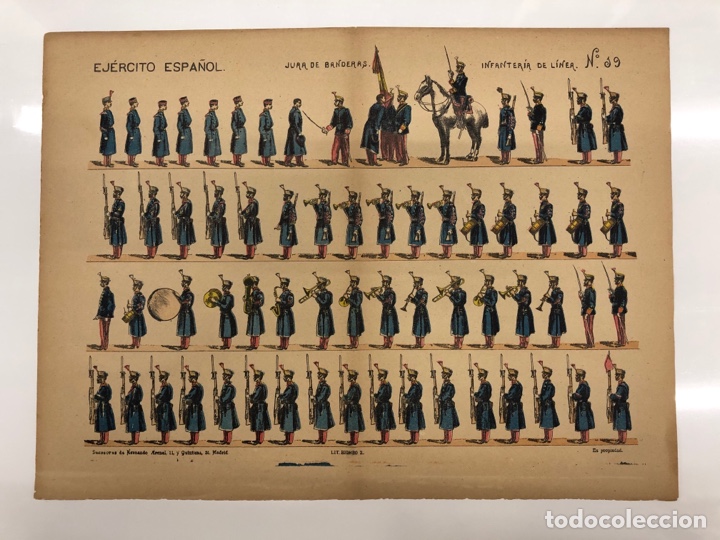 EJÉRCITO ESPAÑOL.
JURA DE BANDERAS.
INFANTERÍA DE LÍNEA.
Nº 39
Sucesores de Hernando Arenal, 11, y Quintana, 31. Madrid
LIT.
Es propiedad.
todocoleccion